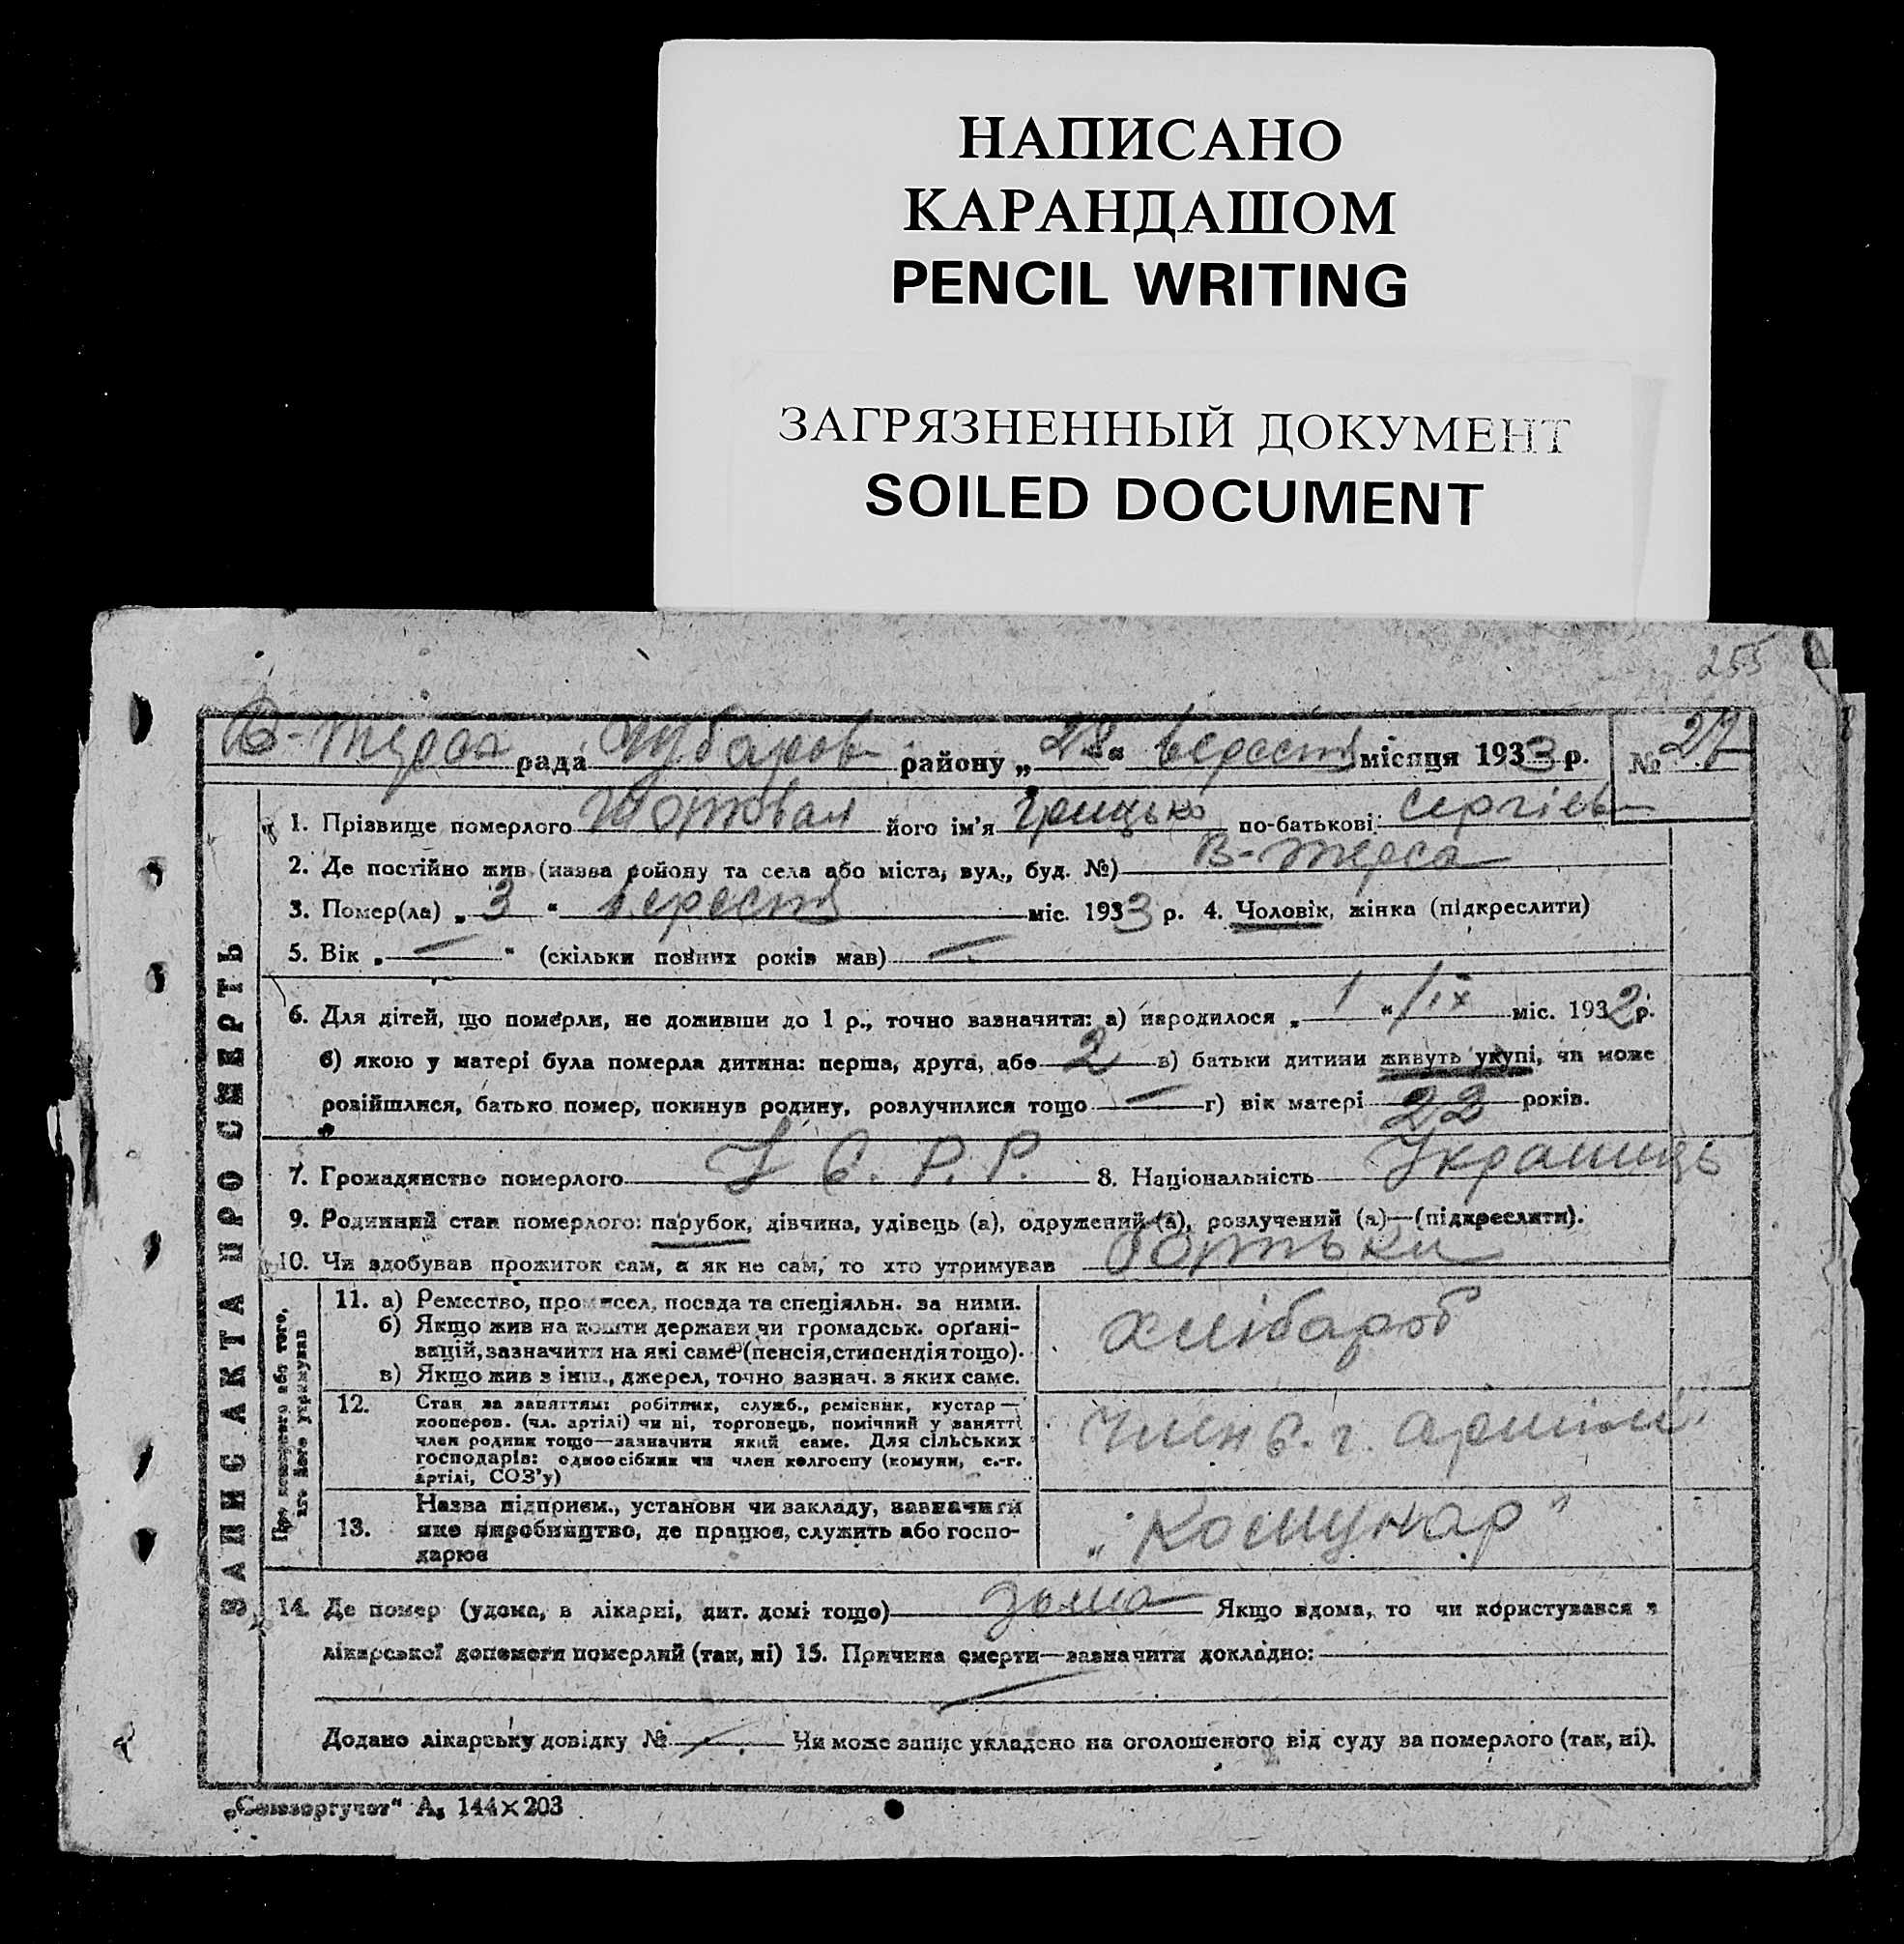 НАПИСАНО
КАРАНДАШОМ
PENCIL WRITING
ЗАГРЯЗНЕННЫЙ ДОКУМЕНТ
SOILED DOCUMENT
255
В-Терса рада Чубаров району „28“ вересня місяця 1933 р. № 27
1. Прізвище померлого його ім'я Грицько по-батькові: Сергієв
2. Де постійно жив (назва району та села або міста, вул., буд. №) В-Терса
3. Помер(ла) „3“ вересня міс. 1933 р. 4. Чоловік, жінка (підкреслити)
5. Вік „—“ (скільки повних років мав) —
6. Для дітей, що померли, не доживши до 1 р., точно зазначити: а) народилося „1“ /ІХ міс. 1932 р.
б) якою у матері була померла дитина: перша, друга, або 2 в) батьки дитини живуть укупі, чи може
розійшлися, батько помер, покинув родину, розлучилися тощо — г) вік матері 22 років.
7. Громадянство померлого У С. Р. Р. 8. Національність Українць
9. Родинний стан померлого: парубок, дівчина, удівець (а), одружений (а), розлучений (а)—(підкреслити).
10. Чи здобував прожиток сам, а як не сам, то хто утримував батьки
ЗАПИС АКТА ПРО СМЕРТЬ
Про померлого або того,
хто його утримував
11. а) Ремество, промисел, посада та спеціяльн. за ними.
б) Якщо жив на кошти держави чи громадськ. орґані-
зацій, зазначити на які саме (пенсія, стипендія тощо).
в) Якщо жив з інш., джерел, точно зазнач. з яких саме.
хлібароб
12. Стан за заняттям: робітник, служб., ремісник, кустар—
кооперов. (чл. артілі) чи ні, торговець, помічний у занятті
член родини тощо—зазначити який саме. Для сільських
господарів: одноосібник чи член колгоспу (комуни, с.-г.
артілі, СОЗ'у)
член с. г. артіли
13. Назва підприєм., установи чи закладу, зазначити
яке виробництво, де працює, служить або госпо-
дарює
„Комунар"
14. Де помер (удома, в лікарні, дит. домі тощо) дома Якщо вдома, то чи користувався з
лікарської допомоги померлий (так, ні) 15. Причина смерти—зазначити докладно:
—
Додано лікарську довідку № — Чи може запис укладено на оголошеного від суду за померлого (так, ні).
„Союзоргучет" А, 144×203